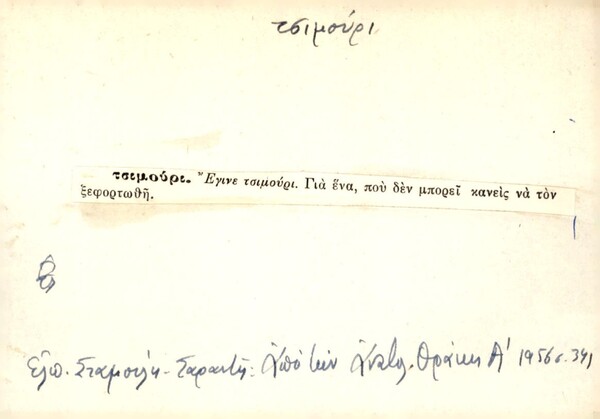 τσιμούρι
τσιμούρι. Ἔγινε τσιμούρι. Γιὰ ἕνα, ποὺ δὲν μπορεῖ κανεὶς νὰ τὸν
ξεφορτωθῇ.
Ἐλπ. Σταμούλη - Σαραντῆ: Ἀπὸ τὴν Ἀνατολ. Θράκη Α' 1956 σ. 341